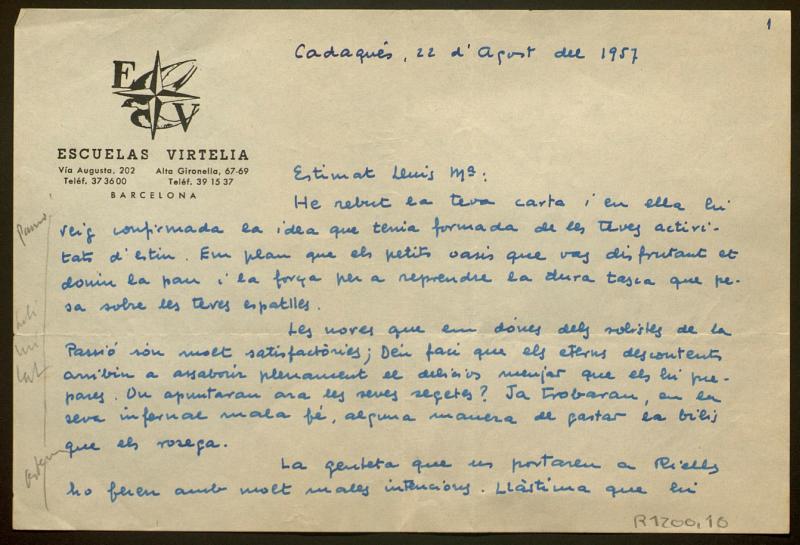 1
Cadaqués, 22 d'Agost del 1957
E V
ESCUELAS VIRTELIA
Vía Augusta, 202 Alta Gironella, 67-69
Teléf. 37 36 00 Teléf. 39 15 37
BARCELONA
Estimat Lluis Mª:
He rebut la teva carta i en ella hi
veig confirmada la idea que tenia formada de les teves activi-
tats d'estiu. Em plau que els petits oasis que vas disfrutant et
donin la pau i la força per a reprendre la dura tasca que pe-
sa sobre les teves espatlles.
Les noves que em dónes dels solistes de la
Passió són molt satisfactòries; Déu faci que els eterns descontents
arribin a assaborir plenament el deliciós menjar que els hi pre-
pares. On apuntaran ara les seves segetes? Ja trobaran, en la
seva infernal mala fé, alguna manera de gastar la bilis
que els rosega.
La genteta que us portaren a Riells
ho feren amb molt males intencions. Llàstima que hi
Passió
R1200,10